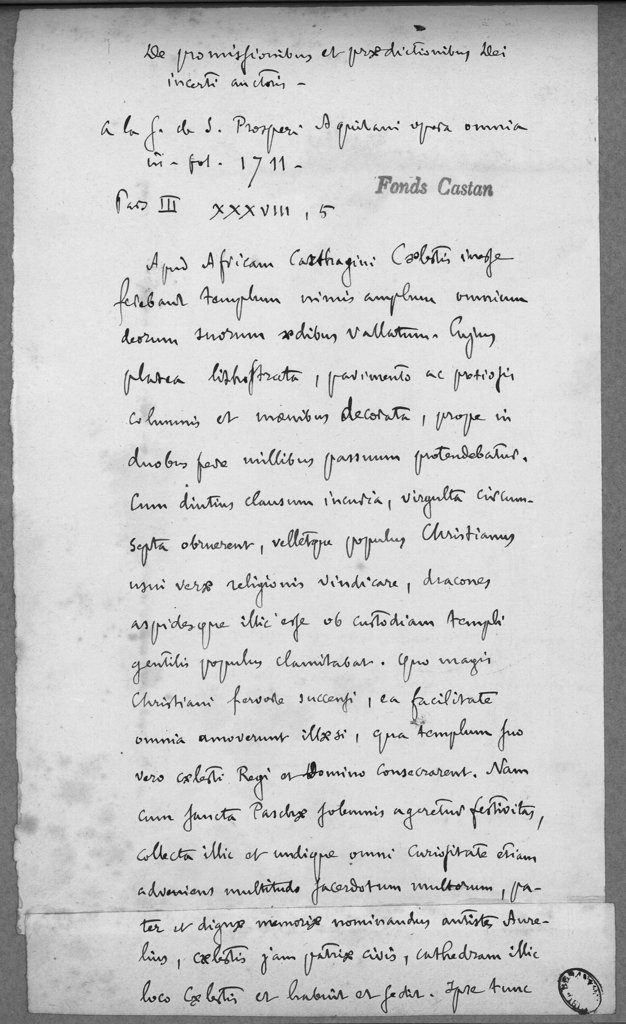 De promissionibus et prædictionibus Dei
incerti auctoris -
a la f. de S. Prosperi Aquitani opera omnia
in-fol. 1711 -
Fonds Castan
Pars III XXXVIII, 5
Apud Africam Carthagini Cælestis inesse
ferebant templum nimis amplum omnium
deorum suorum ædibus vallatum. Cujus
platea lithostrata, pavimento ac pretiosis
columnis et mœnibus decorata, prope in
duobus fere millibus passuum protendebatur.
Cum diutius clausum incuria, virgulta circum-
septa obruerent, velletque populus Christianus
usui veræ religionis vindicare, dracones
aspidesque illic esse ob custodiam templi
gentilis populus clamitabat. Quo magis
Christiani fervore succensi, ea facilitate
omnia amoverunt illæsi, qua templum suo
vero cælesti Regi et Domino consecrarent. Nam
cum sancta Paschæ solemnis ageretur festivitas,
collecta illic et undique omni curiositate etiam
adveniens multitudo sacerdotum multorum, pa-
ter et dignæ memoriæ nominandus antistes Aure-
lius, cælestis jam patriæ civis, cathedram illic
loco Cælestis et habuit et sedit. Ipse tunc